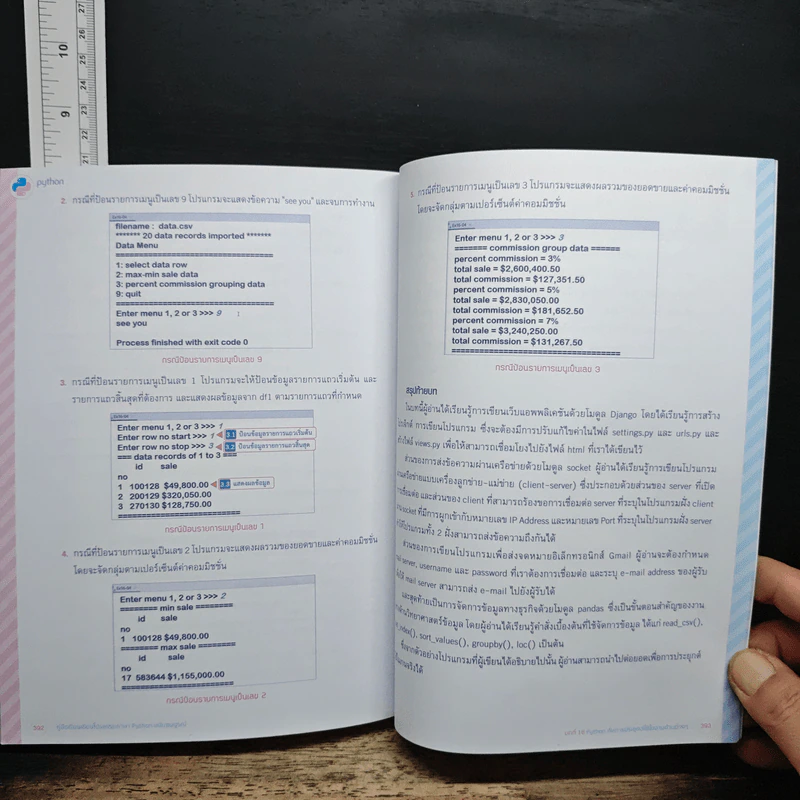 10
9
27
26
25
24
23
22
21
python
2. กรณีที่ป้อนรายการเมนูเป็นเลข 9 โปรแกรมจะแสดงข้อความ "see you" และจบการทำงาน
filename : data.csv
******* 20 data records imported *******
Data Menu
1: select data row
2: max-min sale data
3: percent commission grouping data
9: quit
Enter menu 1, 2 or 3 >>> 9
see you
Process finished with exit code 0
กรณีป้อนรายการเมนูเป็นเลข 9
3. กรณีที่ป้อนรายการเมนูเป็นเลข 1 โปรแกรมจะให้ป้อนข้อมูลรายการแถวเริ่มต้น และ
รายการแถวสิ้นสุดที่ต้องการ และแสดงผลข้อมูลจาก df1 ตามรายการแถวที่กำหนด
Enter menu 1, 2 or 3 >>> 1
Enter row no start >>> 1 3.1 ป้อนข้อมูลรายการแถวเริ่มต้น
Enter row no stop >>> 3 3.2 ป้อนข้อมูลรายการแถวสิ้นสุด
=== data records of 1 to 3 ===
id sale
no
1 100128 $49,800.00 3.3 แสดงผลข้อมูล
2 200129 $320,050.00
3 270130 $128,750.00
กรณีป้อนรายการเมนูเป็นเลข 1
4. กรณีที่ป้อนรายการเมนูเป็นเลข 2 โปรแกรมจะแสดงผลรวมของยอดขายและค่าคอมมิชชั่น
โดยจะจัดกลุ่มตามเปอร์เซ็นต์ค่าคอมมิชชั่น
Enter menu 1, 2 or 3 >>> 2
======== min sale ========
id sale
no
1 100128 $49,800.00
======== max sale ========
id sale
no
17 583644 $1,155,000.00
กรณีป้อนรายการเมนูเป็นเลข 2
กรณีที่ป้อนรายการเมนูเป็นเลข 3 โปรแกรมจะแสดงผลรวมของยอดขายและค่าคอมมิชชั่น
โดยจะจัดกลุ่มตามเปอร์เซ็นต์ค่าคอมมิชชั่น
Enter menu 1, 2 or 3 >>> 3
======= commission group data ======
percent commission = 3%
total sale = $2,600,400.50
total commission = $127,351.50
percent commission = 5%
total sale = $2,830,050.00
total commission = $181,652.50
percent commission = 7%
total sale = $3,240,250.00
total commission = $131,267.50
กรณีป้อนรายการเมนูเป็นเลข 3
สรุปท้ายบท
ในบทนี้ผู้อ่านได้เรียนรู้การเขียนเว็บแอพพลิเคชันด้วยโมดูล Django โดยได้เรียนรู้การสร้าง
การเขียนโปรแกรม ซึ่งจะต้องมีการปรับแก้ไขค่าในไฟล์ settings.py และ urls.py และ
ไฟล์ views.py เพื่อให้สามารถเชื่อมโยงไปยังไฟล์ html ที่เราได้เขียนไว้
ส่วนของการส่งข้อความผ่านเครือข่ายด้วยโมดูล socket ผู้อ่านได้เรียนรู้การเขียนโปรแกรม
เครือข่ายแบบเครื่องลูกข่าย-แม่ข่าย (client-server) ซึ่งประกอบด้วยส่วนของ server ที่เปิด
และส่วนของ client ที่สามารถร้องขอการเชื่อมต่อ server ที่ระบุในโปรแกรมฝั่ง client
socket ที่มีการผูกเข้ากับหมายเลข IP Address และหมายเลข Port ที่ระบุในโปรแกรมฝั่ง server
ทั้ง 2 ฝั่งสามารถส่งข้อความถึงกันได้
ส่วนของการเขียนโปรแกรมเพื่อส่งจดหมายอิเล็กทรอนิกส์ Gmail ผู้อ่านจะต้องกำหนด
server, username และ password ที่เราต้องการเชื่อมต่อ และระบุ e-mail address ของผู้รับ
mail server สามารถส่ง e-mail ไปยังผู้รับได้
และสุดท้ายเป็นการจัดการข้อมูลทางธุรกิจด้วยโมดูล pandas ซึ่งเป็นขั้นตอนสำคัญของงาน
ด้านวิทยาศาสตร์ข้อมูล โดยผู้อ่านได้เรียนรู้คำสั่งเบื้องต้นที่ใช้จัดการข้อมูล ได้แก่ read_csv(),
sort_values(), groupby(), loc() เป็นต้น
ซึ่งจากตัวอย่างโปรแกรมที่ผู้เขียนได้อธิบายไปนั้น ผู้อ่านสามารถนำไปต่อยอดเพื่อการประยุกต์